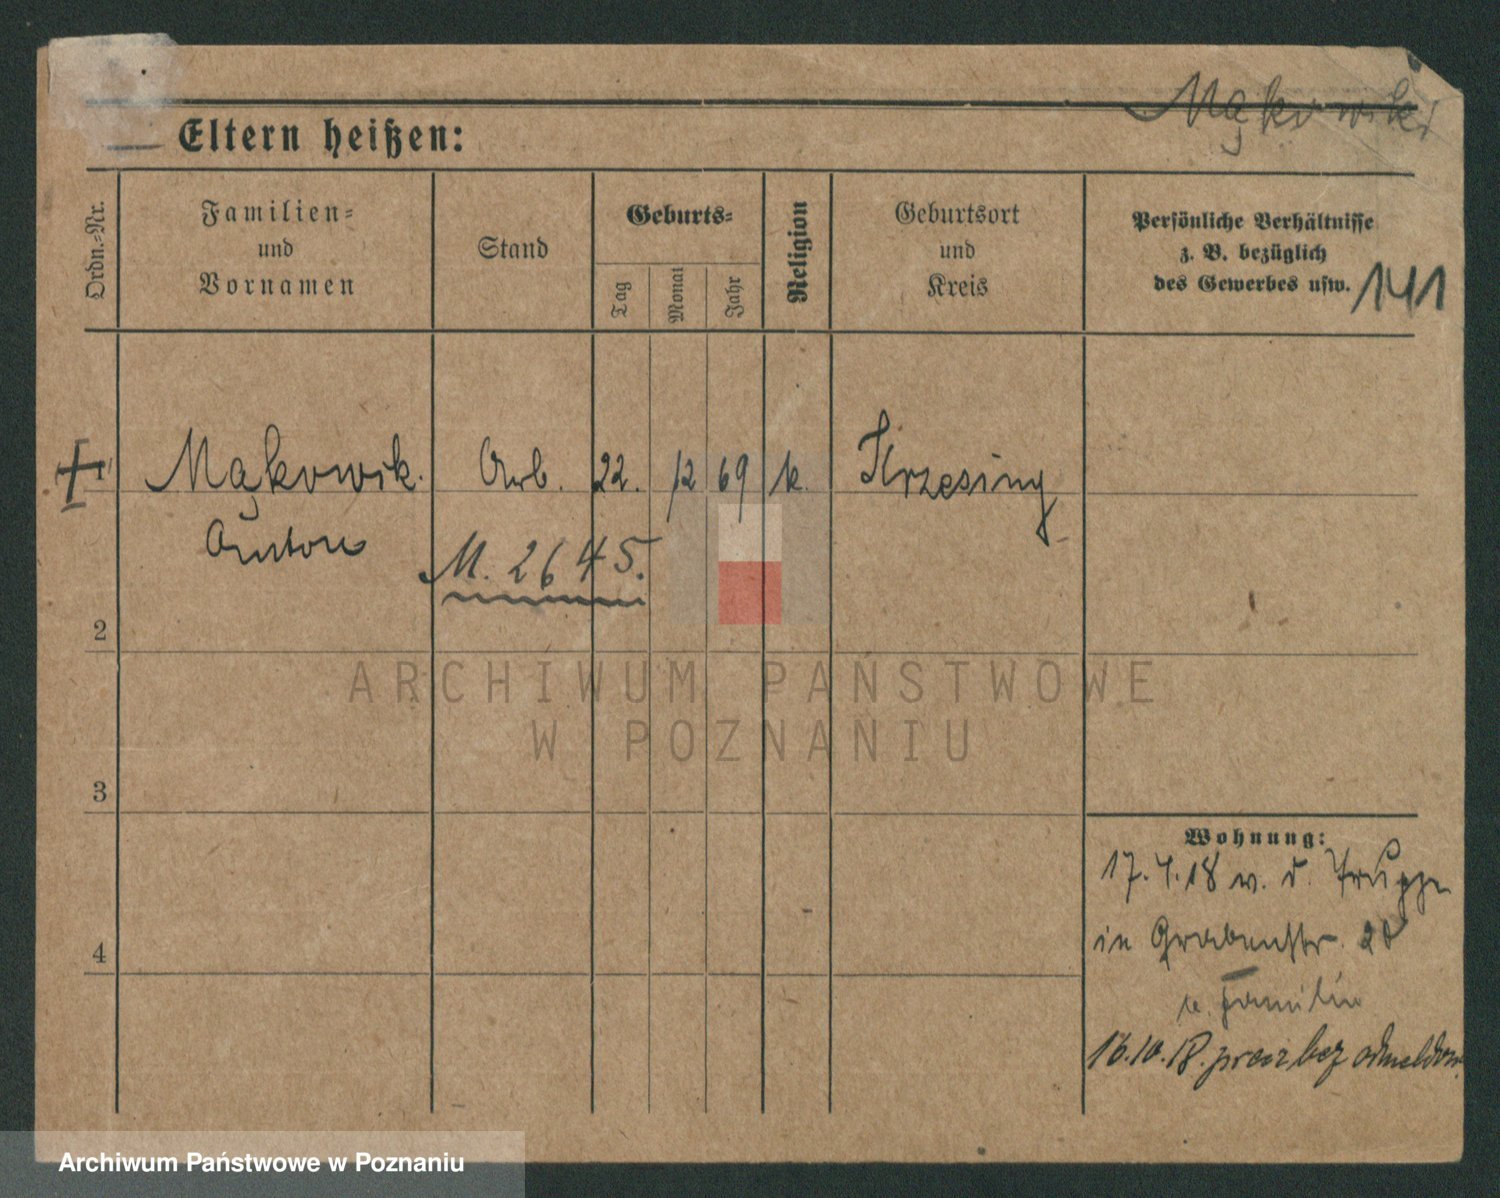 Mąkowski
Eltern heißen:
Ordn.-Nr.
Familien-
und
Vornamen
Stand
Geburts-
Tag
Monat
Jahr
Religion
Geburtsort
und
Kreis
Persönliche Verhältnisse
z. B. bezüglich
des Gewerbes usw.
141
1
Mąkowsk.
Arb.
22.
12
69
k.
Krzesiny
Anton
M. 2645.
2
3
4
Wohnung:
17.7.18 v. d. Truppe
in Grabenstr. 20
z. Familie
16.10.18. precz bez odmeldow.
ARCHIWUM PAŃSTWOWE
W POZNANIU
Archiwum Państwowe w Poznaniu